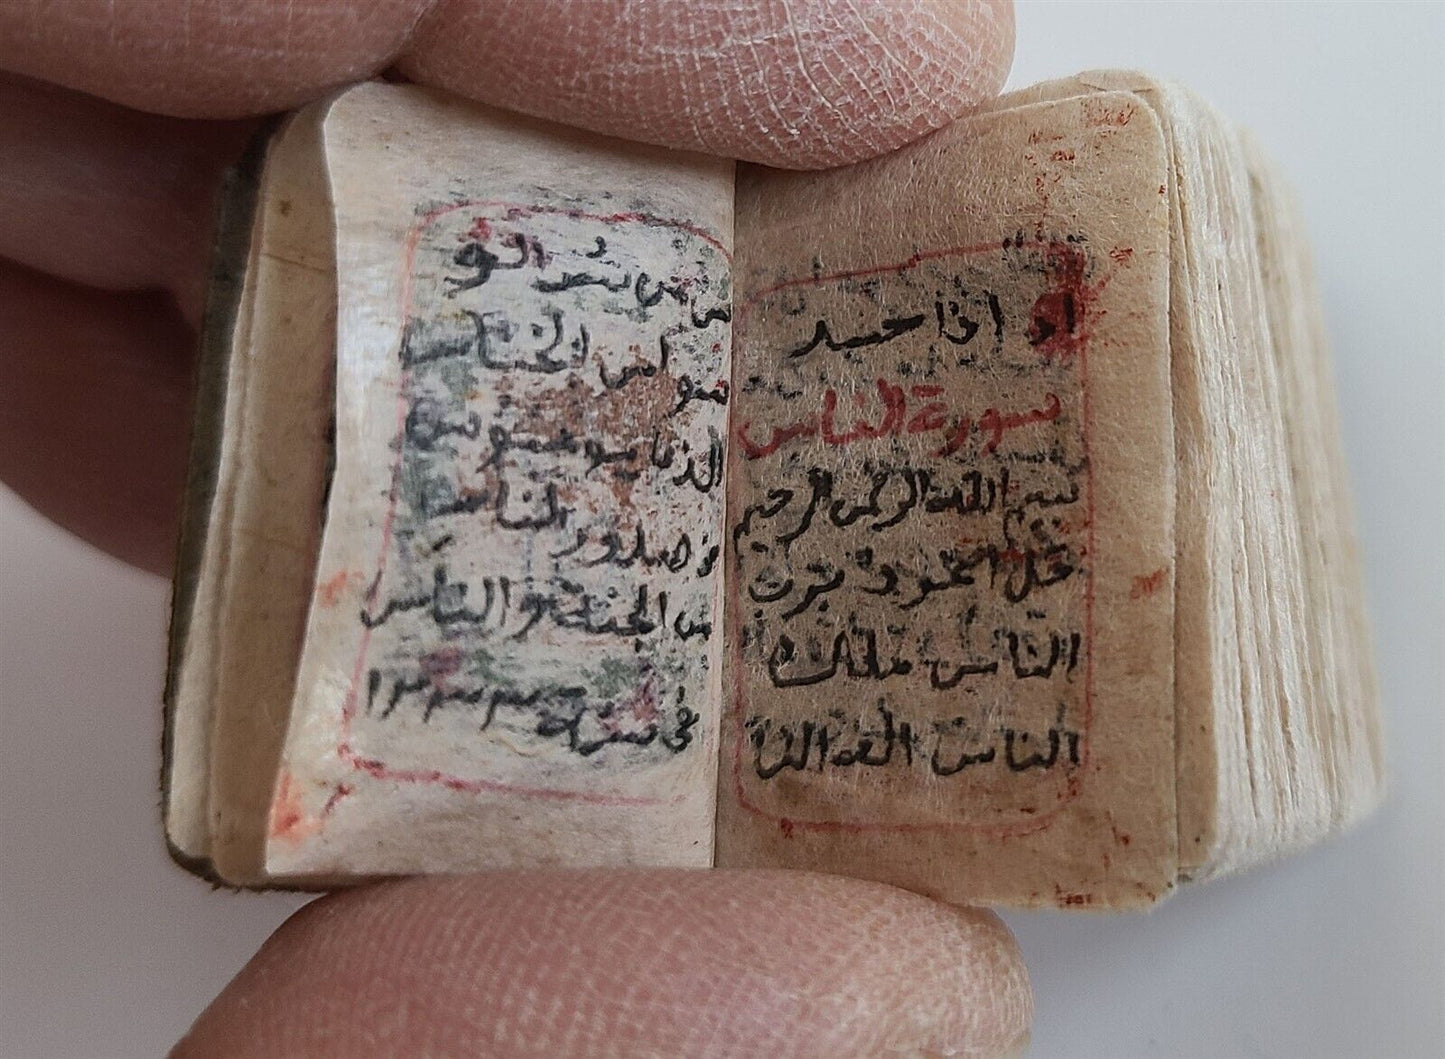 اذا حسد
سورة الناس
بسم الله الرحمن الرحيم
قل اعوذ برب
الناس ملك
الناس اله النا
س من شر الو
سواس الخناس
الذى يوسوس
فى صدور الناس
من الجنة و الناس
فى سنة